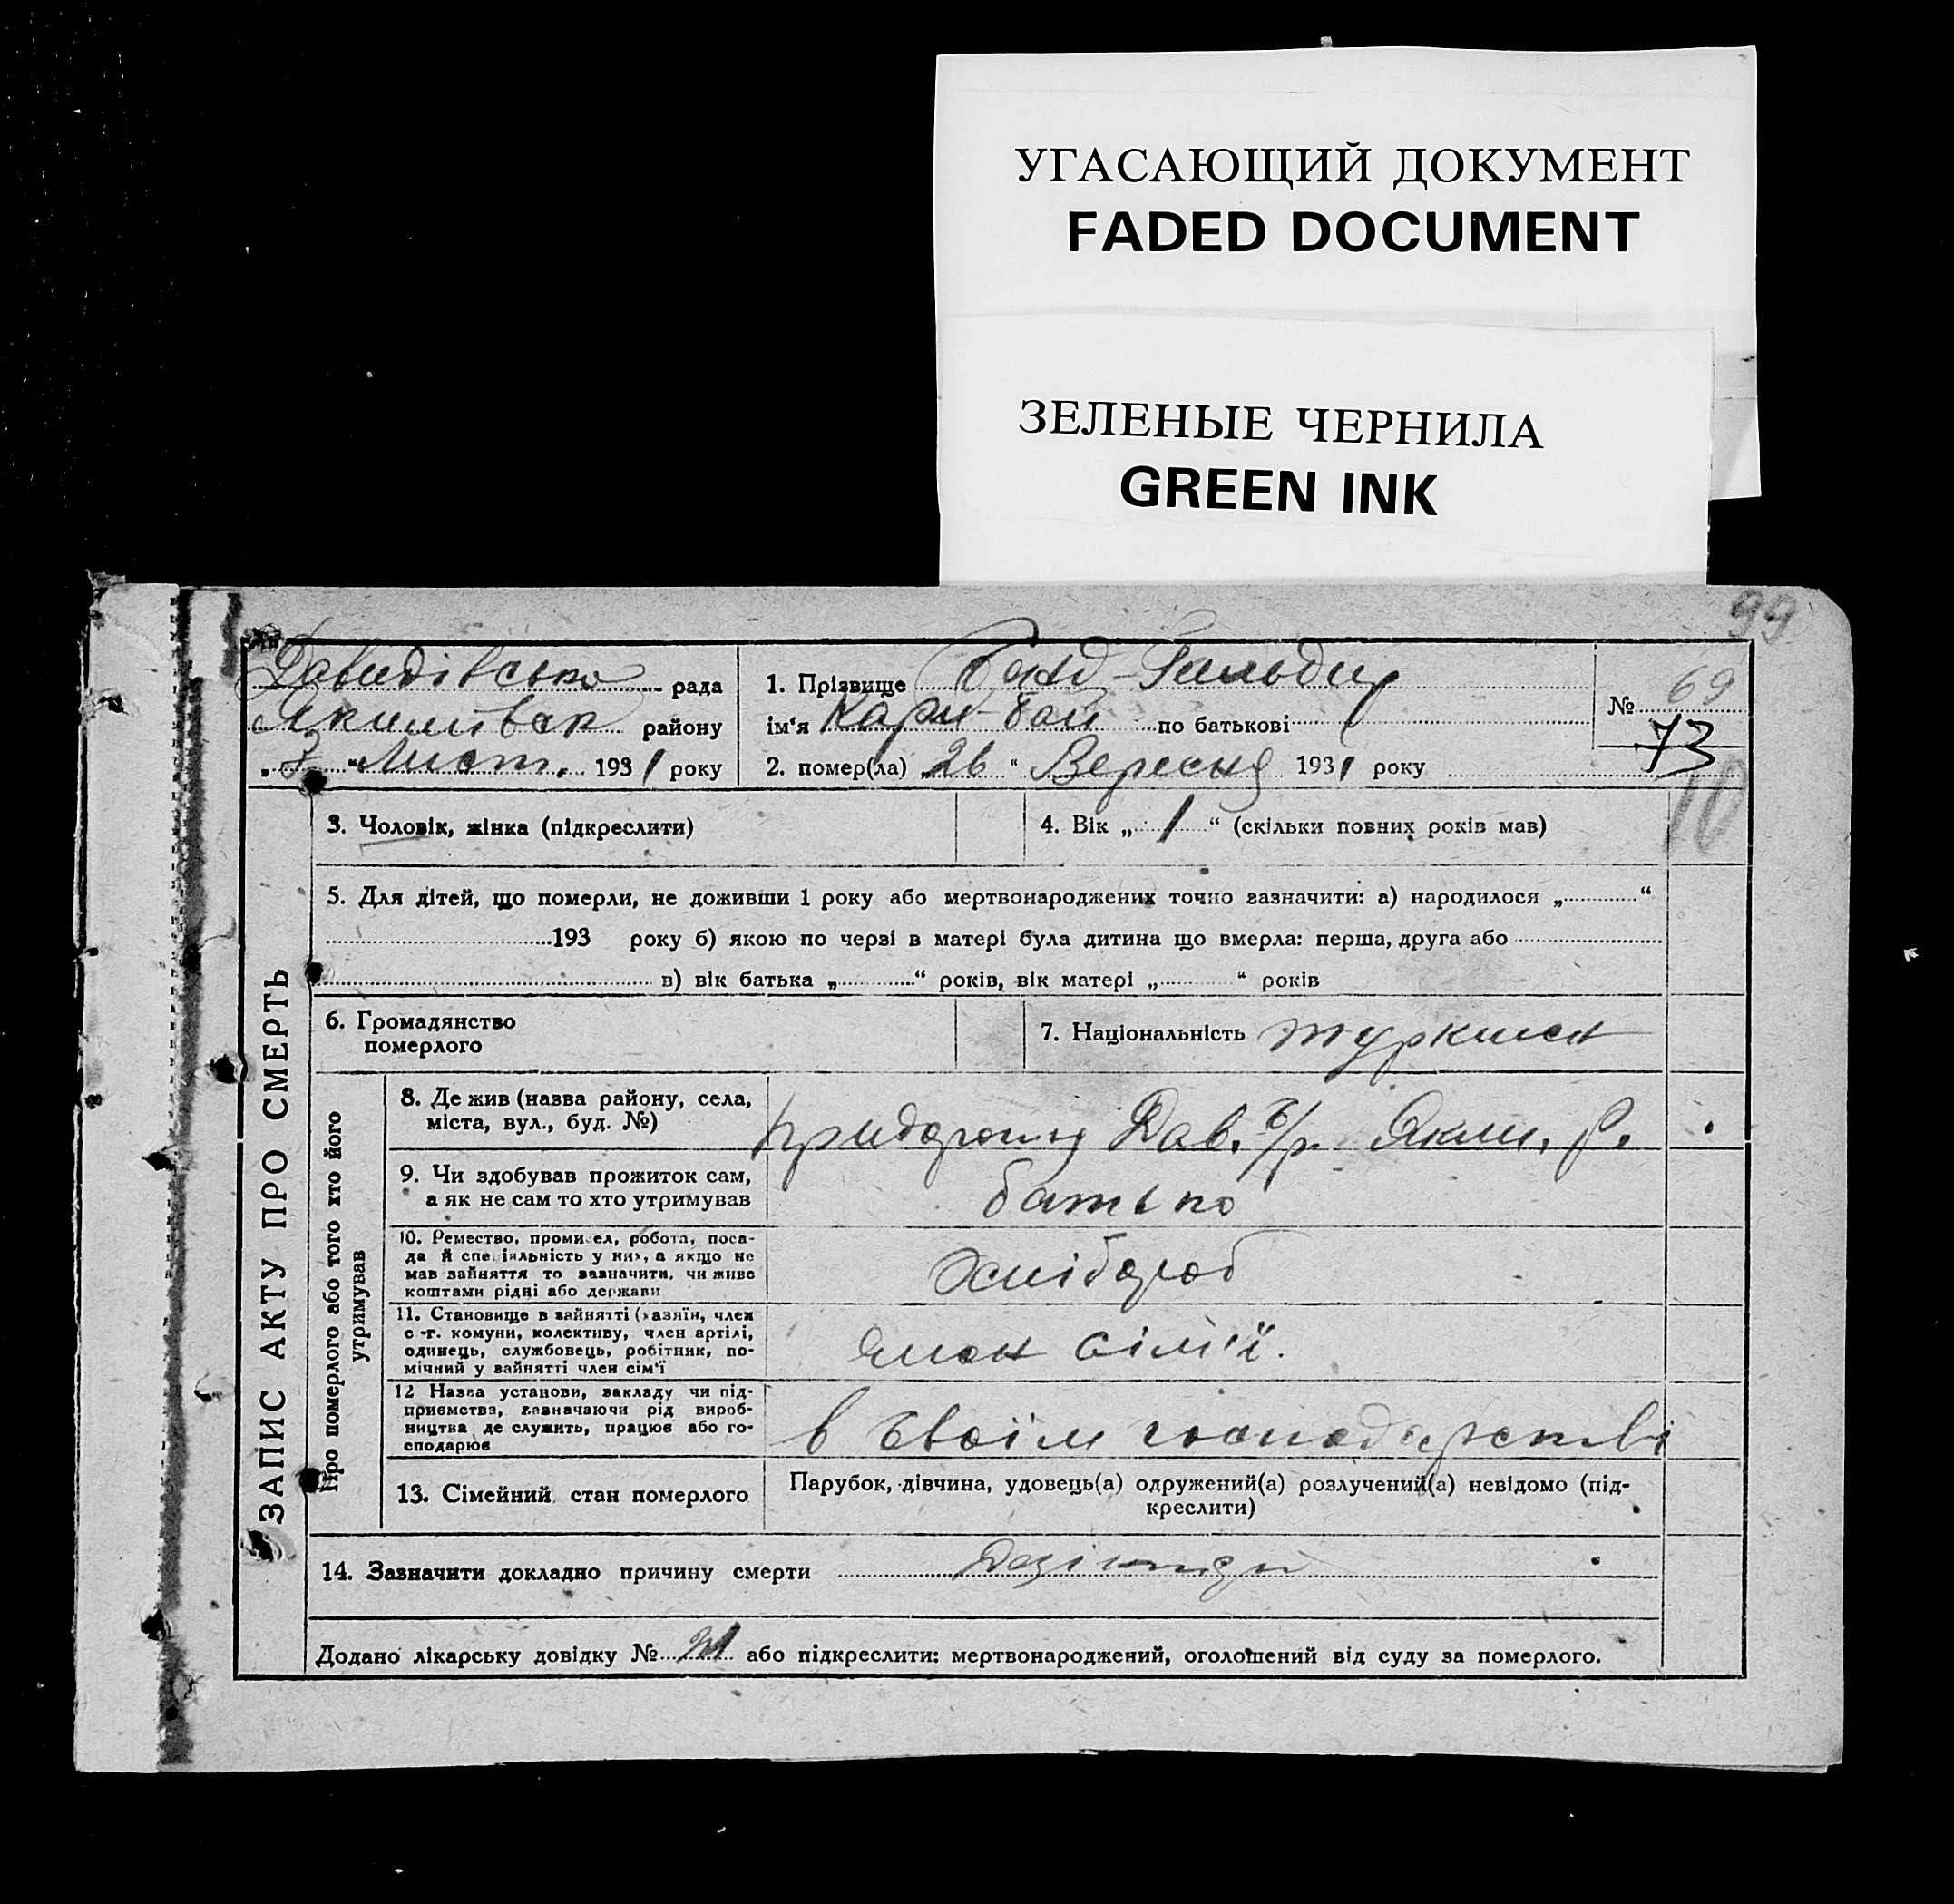 УГАСАЮЩИЙ ДОКУМЕНТ
FADED DOCUMENT
ЗЕЛЕНЫЕ ЧЕРНИЛА
GREEN INK
99
Давидівсько рада
Якимівськ району
„3“ Лист. 1931 року
1. Прізвище Гильди
ім‘я Кари-бай по батькові
2. помер(ла) „26“ Вересня 1931 року
№ 69
73
10
ЗАПИС АКТУ ПРО СМЕРТЬ
3. Чоловік, жінка (підкреслити)
4. Вік „1“ (скільки повних років мав)
5. Для дітей, що померли, не доживши 1 року або мертвонароджених точно зазначити: а) народилося „ “
193 року б) якою по черзі в матері була дитина що вмерла: перша, друга або
в) вік батька „ “ років, вік матері „ “ років
6. Громадянство
померлого
7. Національність туркмен
Про померлого або того хто його
утримував
8. Де жив (назва району, села,
міста, вул., буд. №)
Дав. с/р. Яким. р.
9. Чи здобував прожиток сам,
а як не сам то хто утримував
батько
10. Ремество, промисел, робота, поса-
да й спеціяльність у них, а якщо не
мав зайняття то зазначити, чи живе
коштами рідні або держави
хлібороб
11. Становище в зайнятті (хазяїн, член
с.-г. комуни, колективу, член артілі,
одинець, службовець, робітник, по-
мічний у зайнятті член сім‘ї
член сім'ї.
12 Назва установи, закладу чи під-
приємства, зазначаючи рід вироб-
ництва де служить, працює або го-
сподарює
в своїм господарстві
13. Сімейний стан померлого
Парубок, дівчина, удовець(а) одружений(а) розлучений(а) невідомо (під-
креслити)
14. Зазначити докладно причину смерти
Додано лікарську довідку № або підкреслити: мертвонароджений, оголошений від суду за померлого.